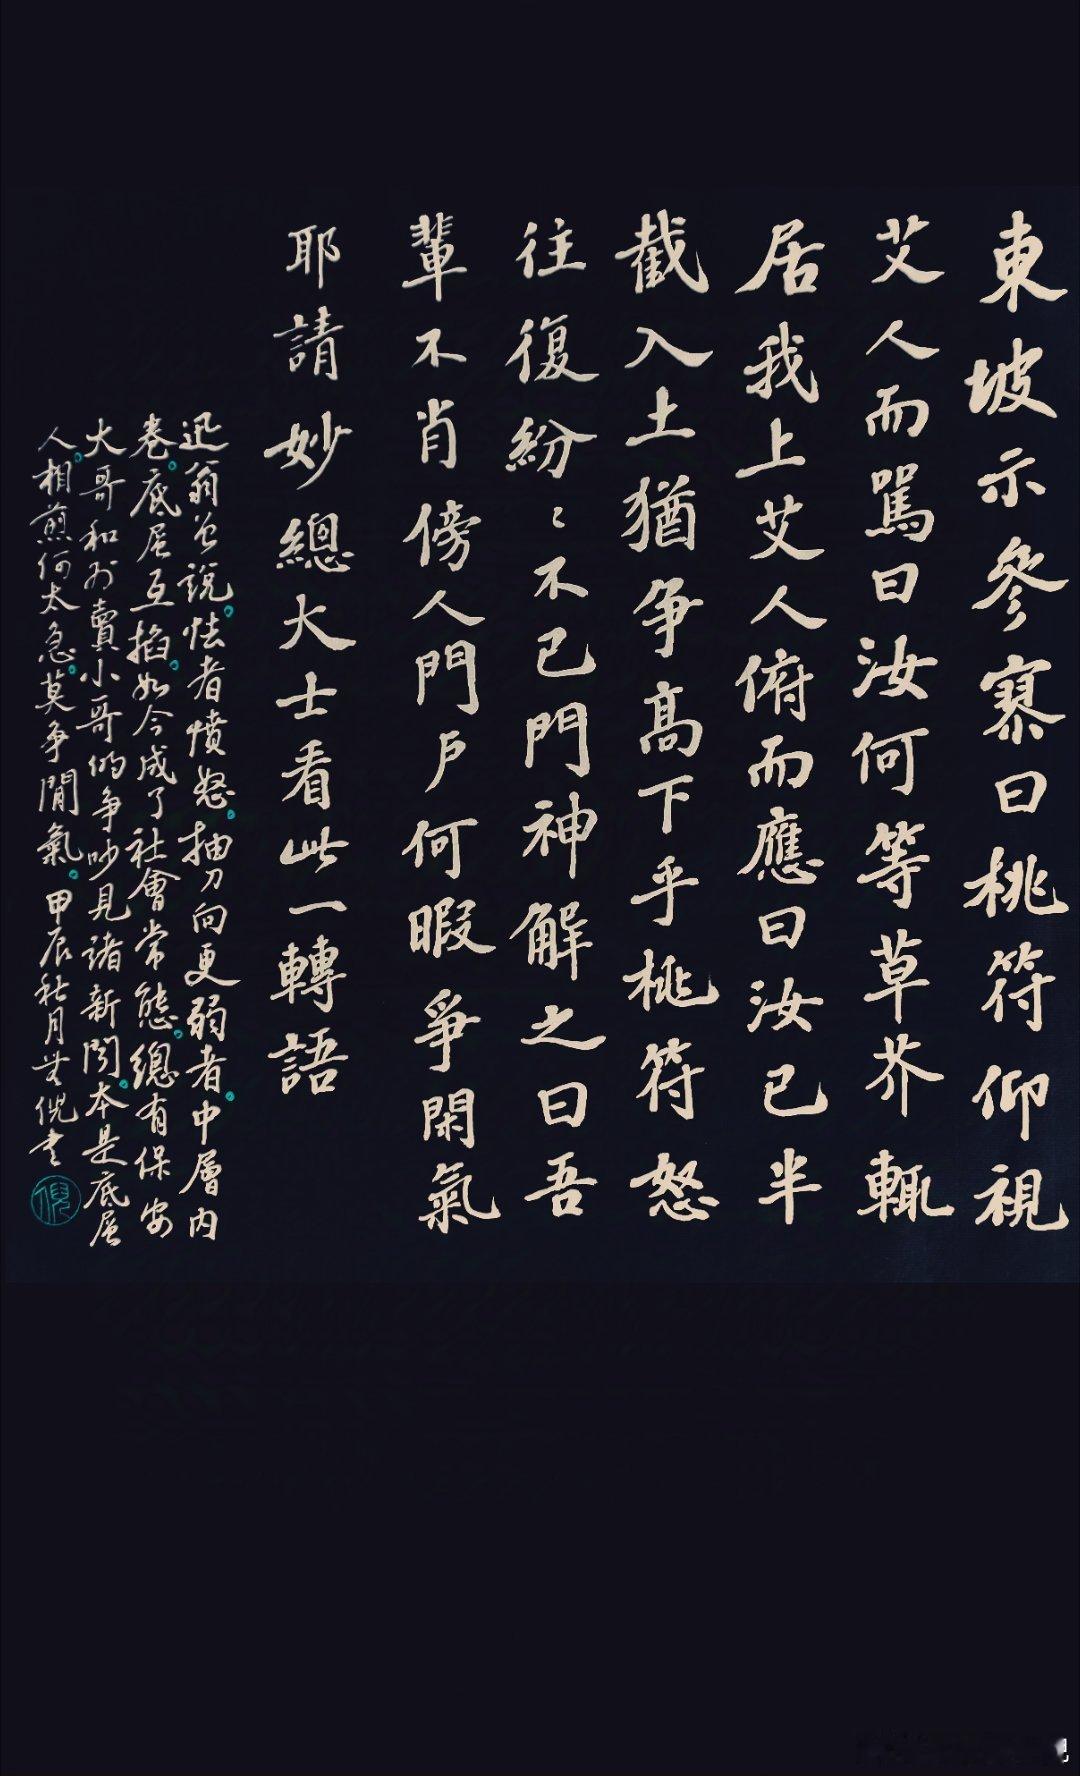 東坡示參寥曰桃符仰視
艾人而罵曰汝何等草芥輒
居我上艾人俯而應曰汝已半
截入土猶争高下乎桃符怒
往復紛〻不已門神解之曰吾
輩不肖傍人門戶何暇爭閑氣
耶請妙總大士看此一轉語
迅翁曾說。怯者憤怒。抽刀向更弱者。中層内
卷。底层互掐。如今成了社會常態。總有保安
大哥和外賣小哥的争吵見諸新闻。本是底层
人。相煎何太急。莫争閒氣。甲辰秋月老倪书
倪